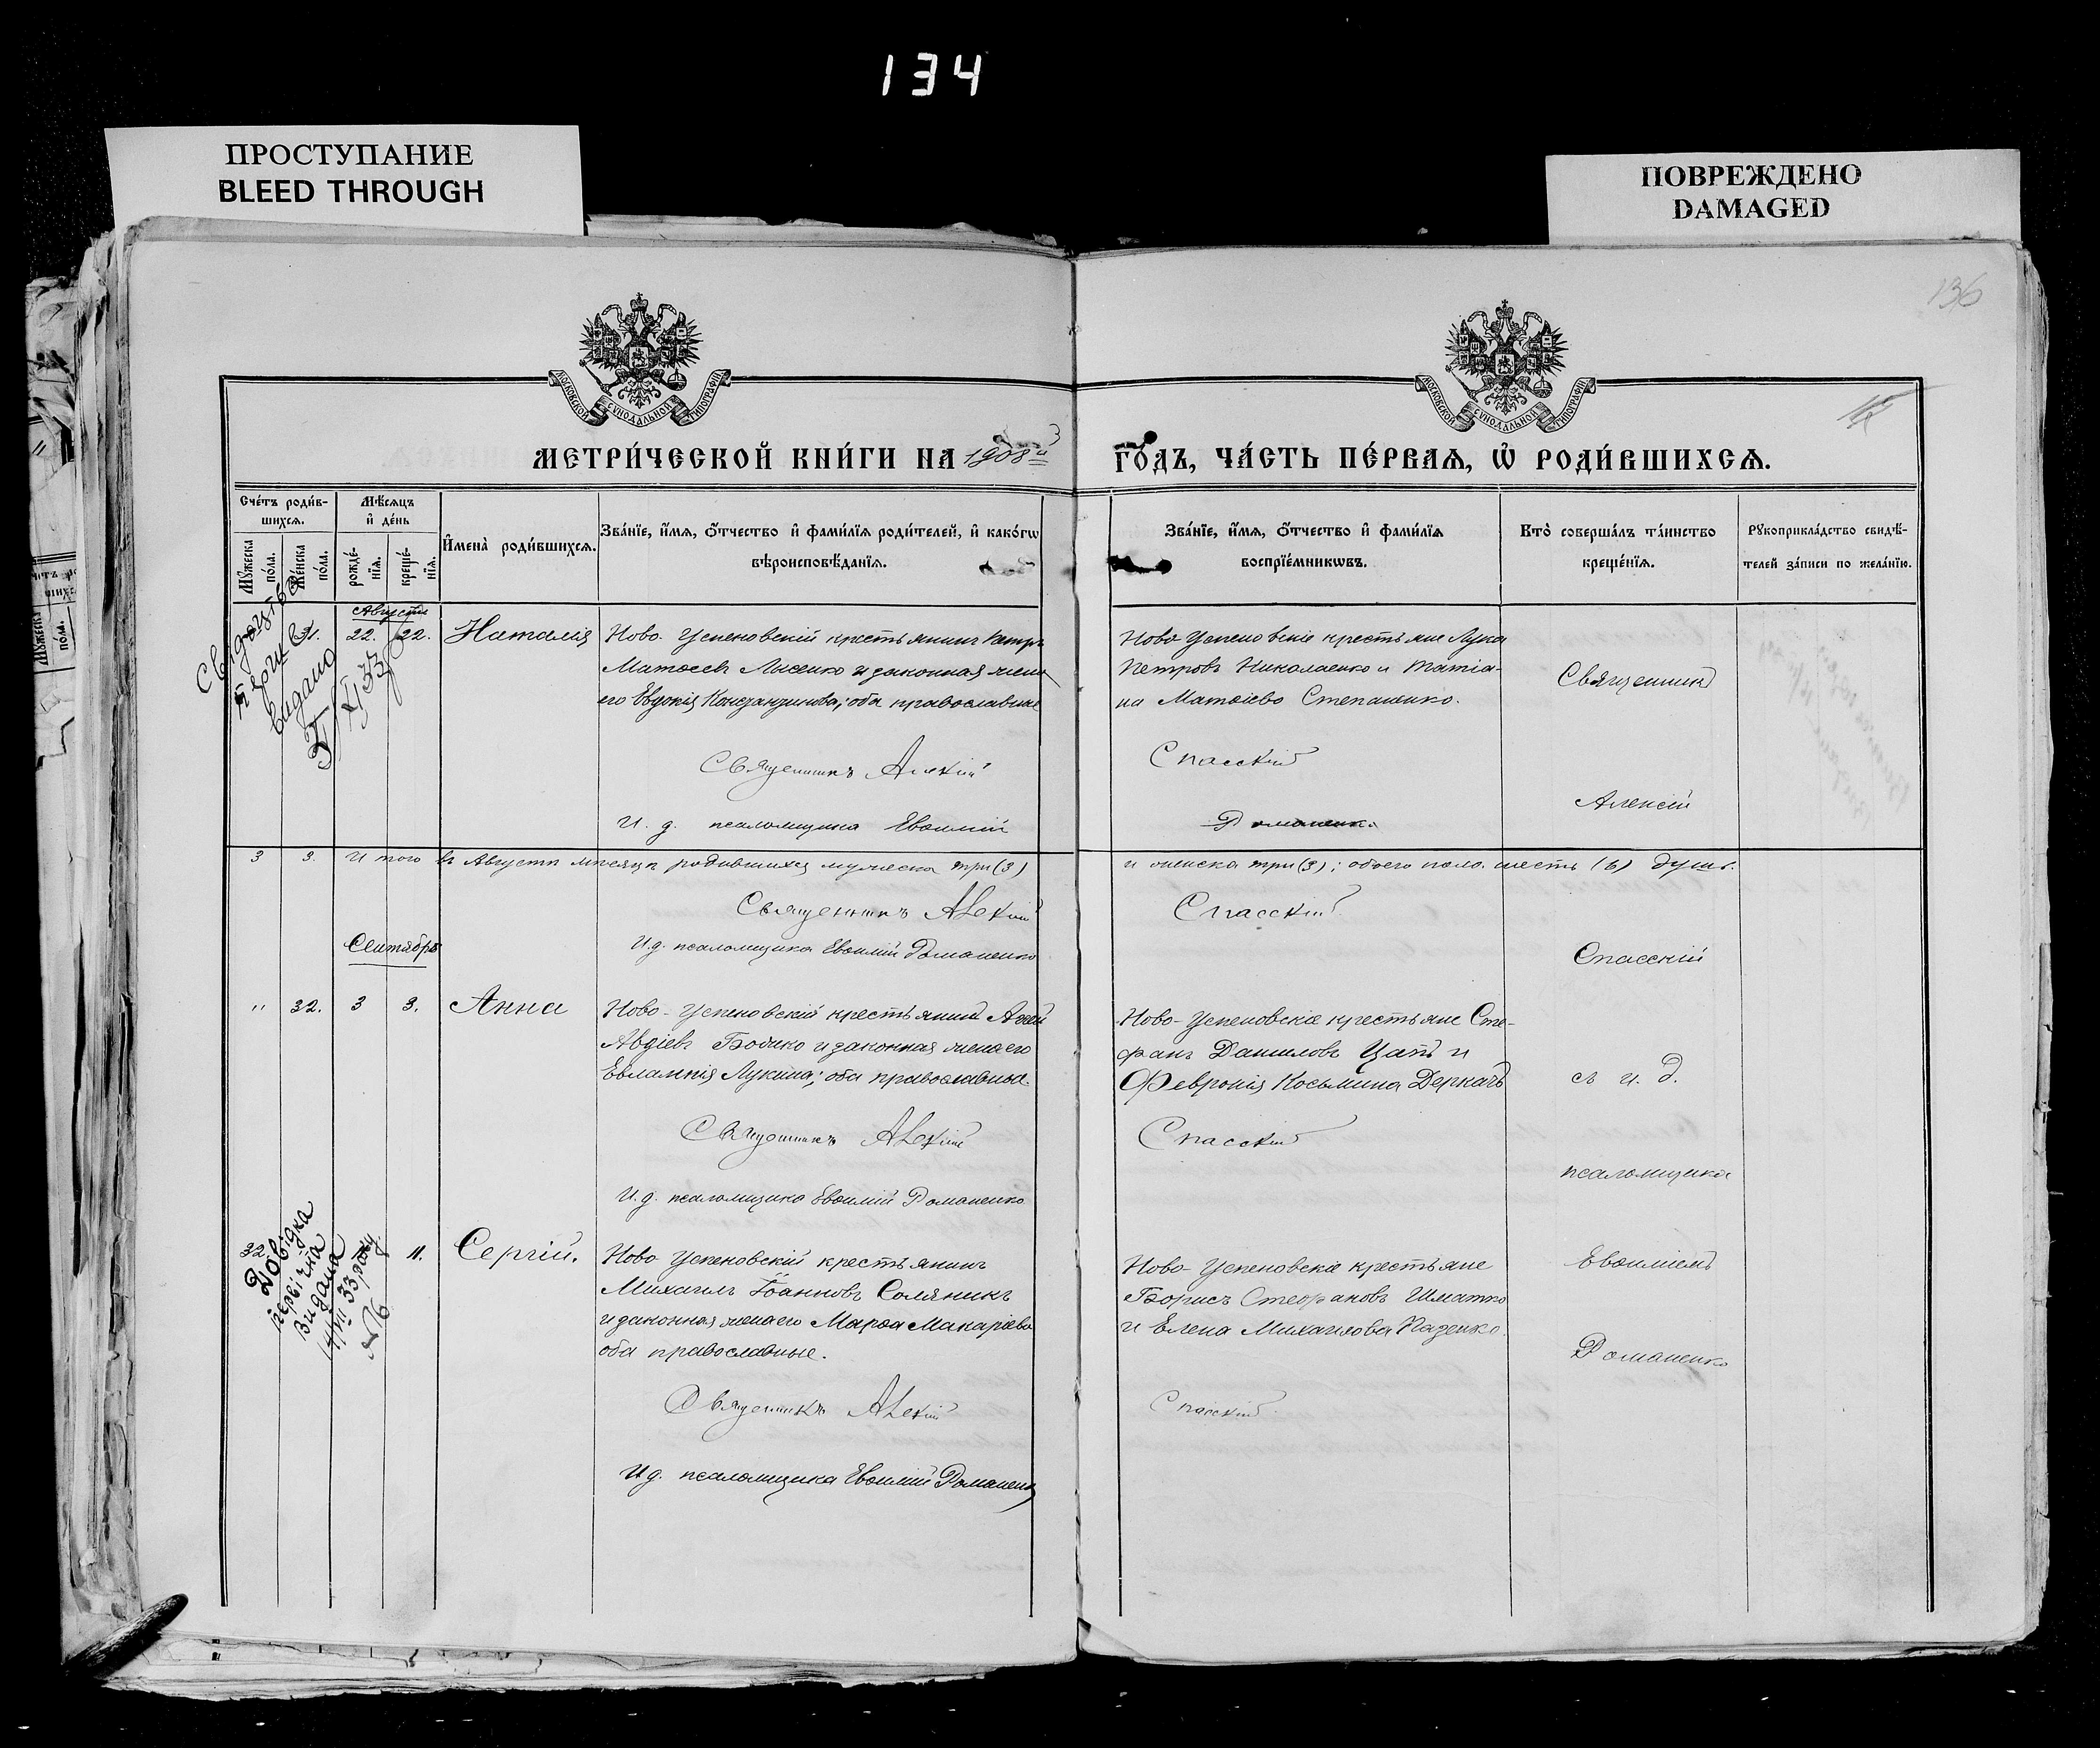 134
ПРОСТУПАНИЕ
BLEED THROUGH
ПОВРЕЖДЕНО
DAMAGED
136
МОСКОВСКОЙ СѴНОДАЛЬНОЙ ТИПОГРАФІИ
МОСКОВСКОЙ СѴНОДАЛЬНОЙ ТИПОГРАФІИ
МЕТРИ́ЧЕСКОЙ КНИ́ГИ НА 1908й
ГО́ДЪ, ЧА́СТЬ ПЕ́РВАЯ, Ѡ РОДИ́ВШИХСѦ.
Счéтъ роди́в-
шихсѧ.
Мꙋ́жеска
по́ла.
Же́нска
по́ла.
Мѣ́сѧцъ
и҆ де́нь
рожде́-
нїѧ.
креще́-
нїѧ.
И҆мена̀ роди́вшихсѧ.
Зва́нїе, и҆́мѧ, ѻ҆́тчество и҆ фами́лїѧ роди́телей, и҆ како́гѡ
вѣроисповѣ́данїѧ.
Зва́нїе, и҆́мѧ, ѻ҆́тчество и҆ фами́лїѧ
воспрїе́мникѡвъ.
Кто̀ соверша́лъ та́инство
креще́нїѧ.
Рꙋкоприкла́дство свидѣ́-
телей за́писи по жела́нїю.
Августъ
31. 22. 22. Наталія
Ново-Успеновскій крестьянинъ Петръ
Матѳеевъ Лысенко и законная жена
его Евдокія Константинова; оба православные
Священникъ Алексій
И. д. псаломщика Евѳимій
Ново Успеновскіе крестьяне Лука
Петровъ Николаенко и Татіа-
на Матѳіева Степаненко.
Спасскій
Романенко
Священникъ
Алексій
3 3. Итого въ Августѣ мѣсяцѣ родившихся мужеска три (3)
и женска три (3); обоего пола шесть (6) душъ.
Священникъ Алексій
Спасскій
И.д. псаломщика Евѳимій Романенко
Спасскій
Сентябрь
" 32. 3 3. Анна
Ново-Успеновскій крестьянинъ
Авдіевъ Бойко и законная жена его
Евлампія Лукина; оба православные.
Священникъ Алексій
И. д. псаломщика Евѳимій Романенко
Ново-Успеновскіе крестьяне Сте-
фанъ Даниловъ Цапъ и
Февронія Косьмина Деркачъ
Спасскій
съ и. д.
псаломщика
Довідка
видана
33 року
32 11. Сергій.
Ново Успеновскій крестьянинъ
Михаилъ Іоанновъ Соляникъ
и законная жена его Марѳа Макаріева
оба православные.
Священникъ Алексій
И д. псаломщика Евѳимій Романенко
Ново-Успеновскіе крестьяне
Борисъ Стефановъ Шматко
и Елена Михаилова
Спасскій
Евѳиміемъ
Романенко